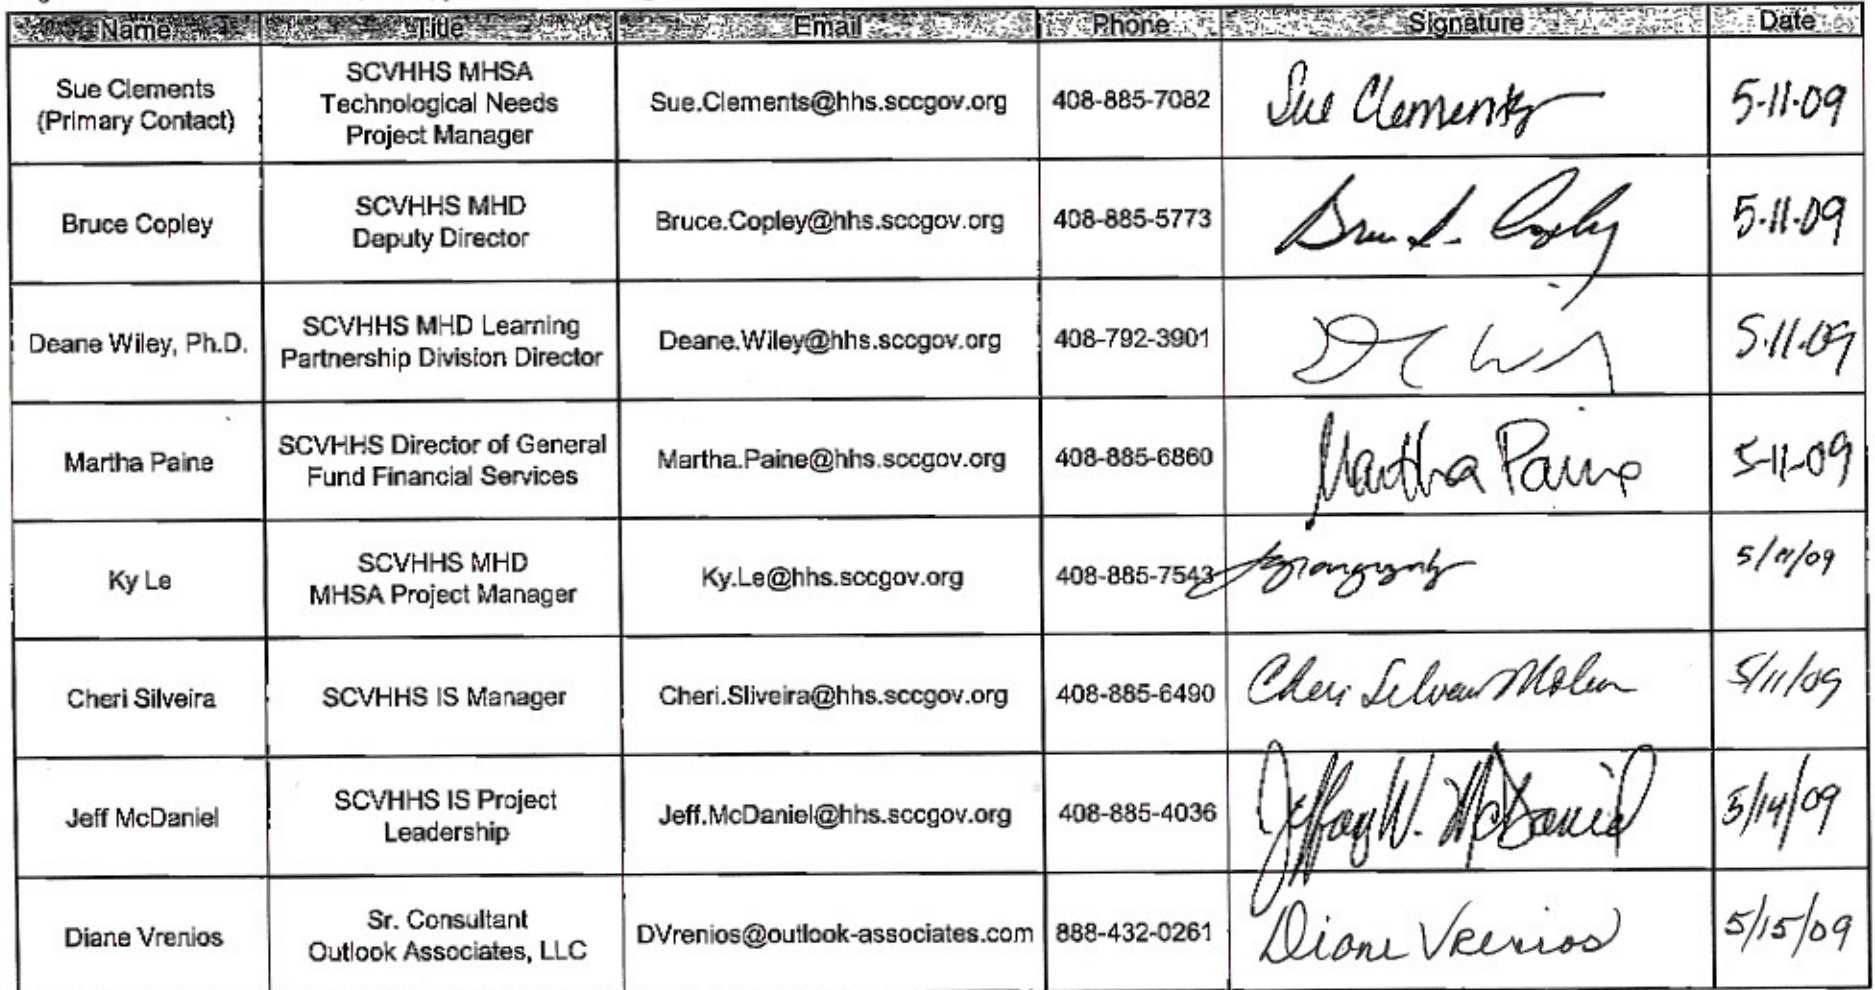 Name Title Email Phone Signature Date
Sue Clements (Primary Contact) SCVHHS MHSA Technological Needs Project Manager Sue.Clements@hhs.sccgov.org 408-885-7082 Sue Clements 5-11-09
Bruce Copley SCVHHS MHD Deputy Director Bruce.Copley@hhs.sccgov.org 408-885-5773 Copley 5-11-09
Deane Wiley, Ph.D. SCVHHS MHD Learning Partnership Division Director Deane.Wiley@hhs.sccgov.org 408-792-3901 5-11-09
Martha Paine SCVHHS Director of General Fund Financial Services Martha.Paine@hhs.sccgov.org 408-885-6860 Martha Paine 5-11-09
Ky Le SCVHHS MHD MHSA Project Manager Ky.Le@hhs.sccgov.org 408-885-7543 5/11/09
Cheri Silveira SCVHHS IS Manager Cheri.Sliveira@hhs.sccgov.org 408-885-6490 Cheri 5/11/09
Jeff McDaniel SCVHHS IS Project Leadership Jeff.McDaniel@hhs.sccgov.org 408-885-4036 Jeffrey W. McDaniel 5/14/09
Diane Vrenios Sr. Consultant Outlook Associates, LLC DVrenios@outlook-associates.com 888-432-0261 Diane Vrenios 5/15/09